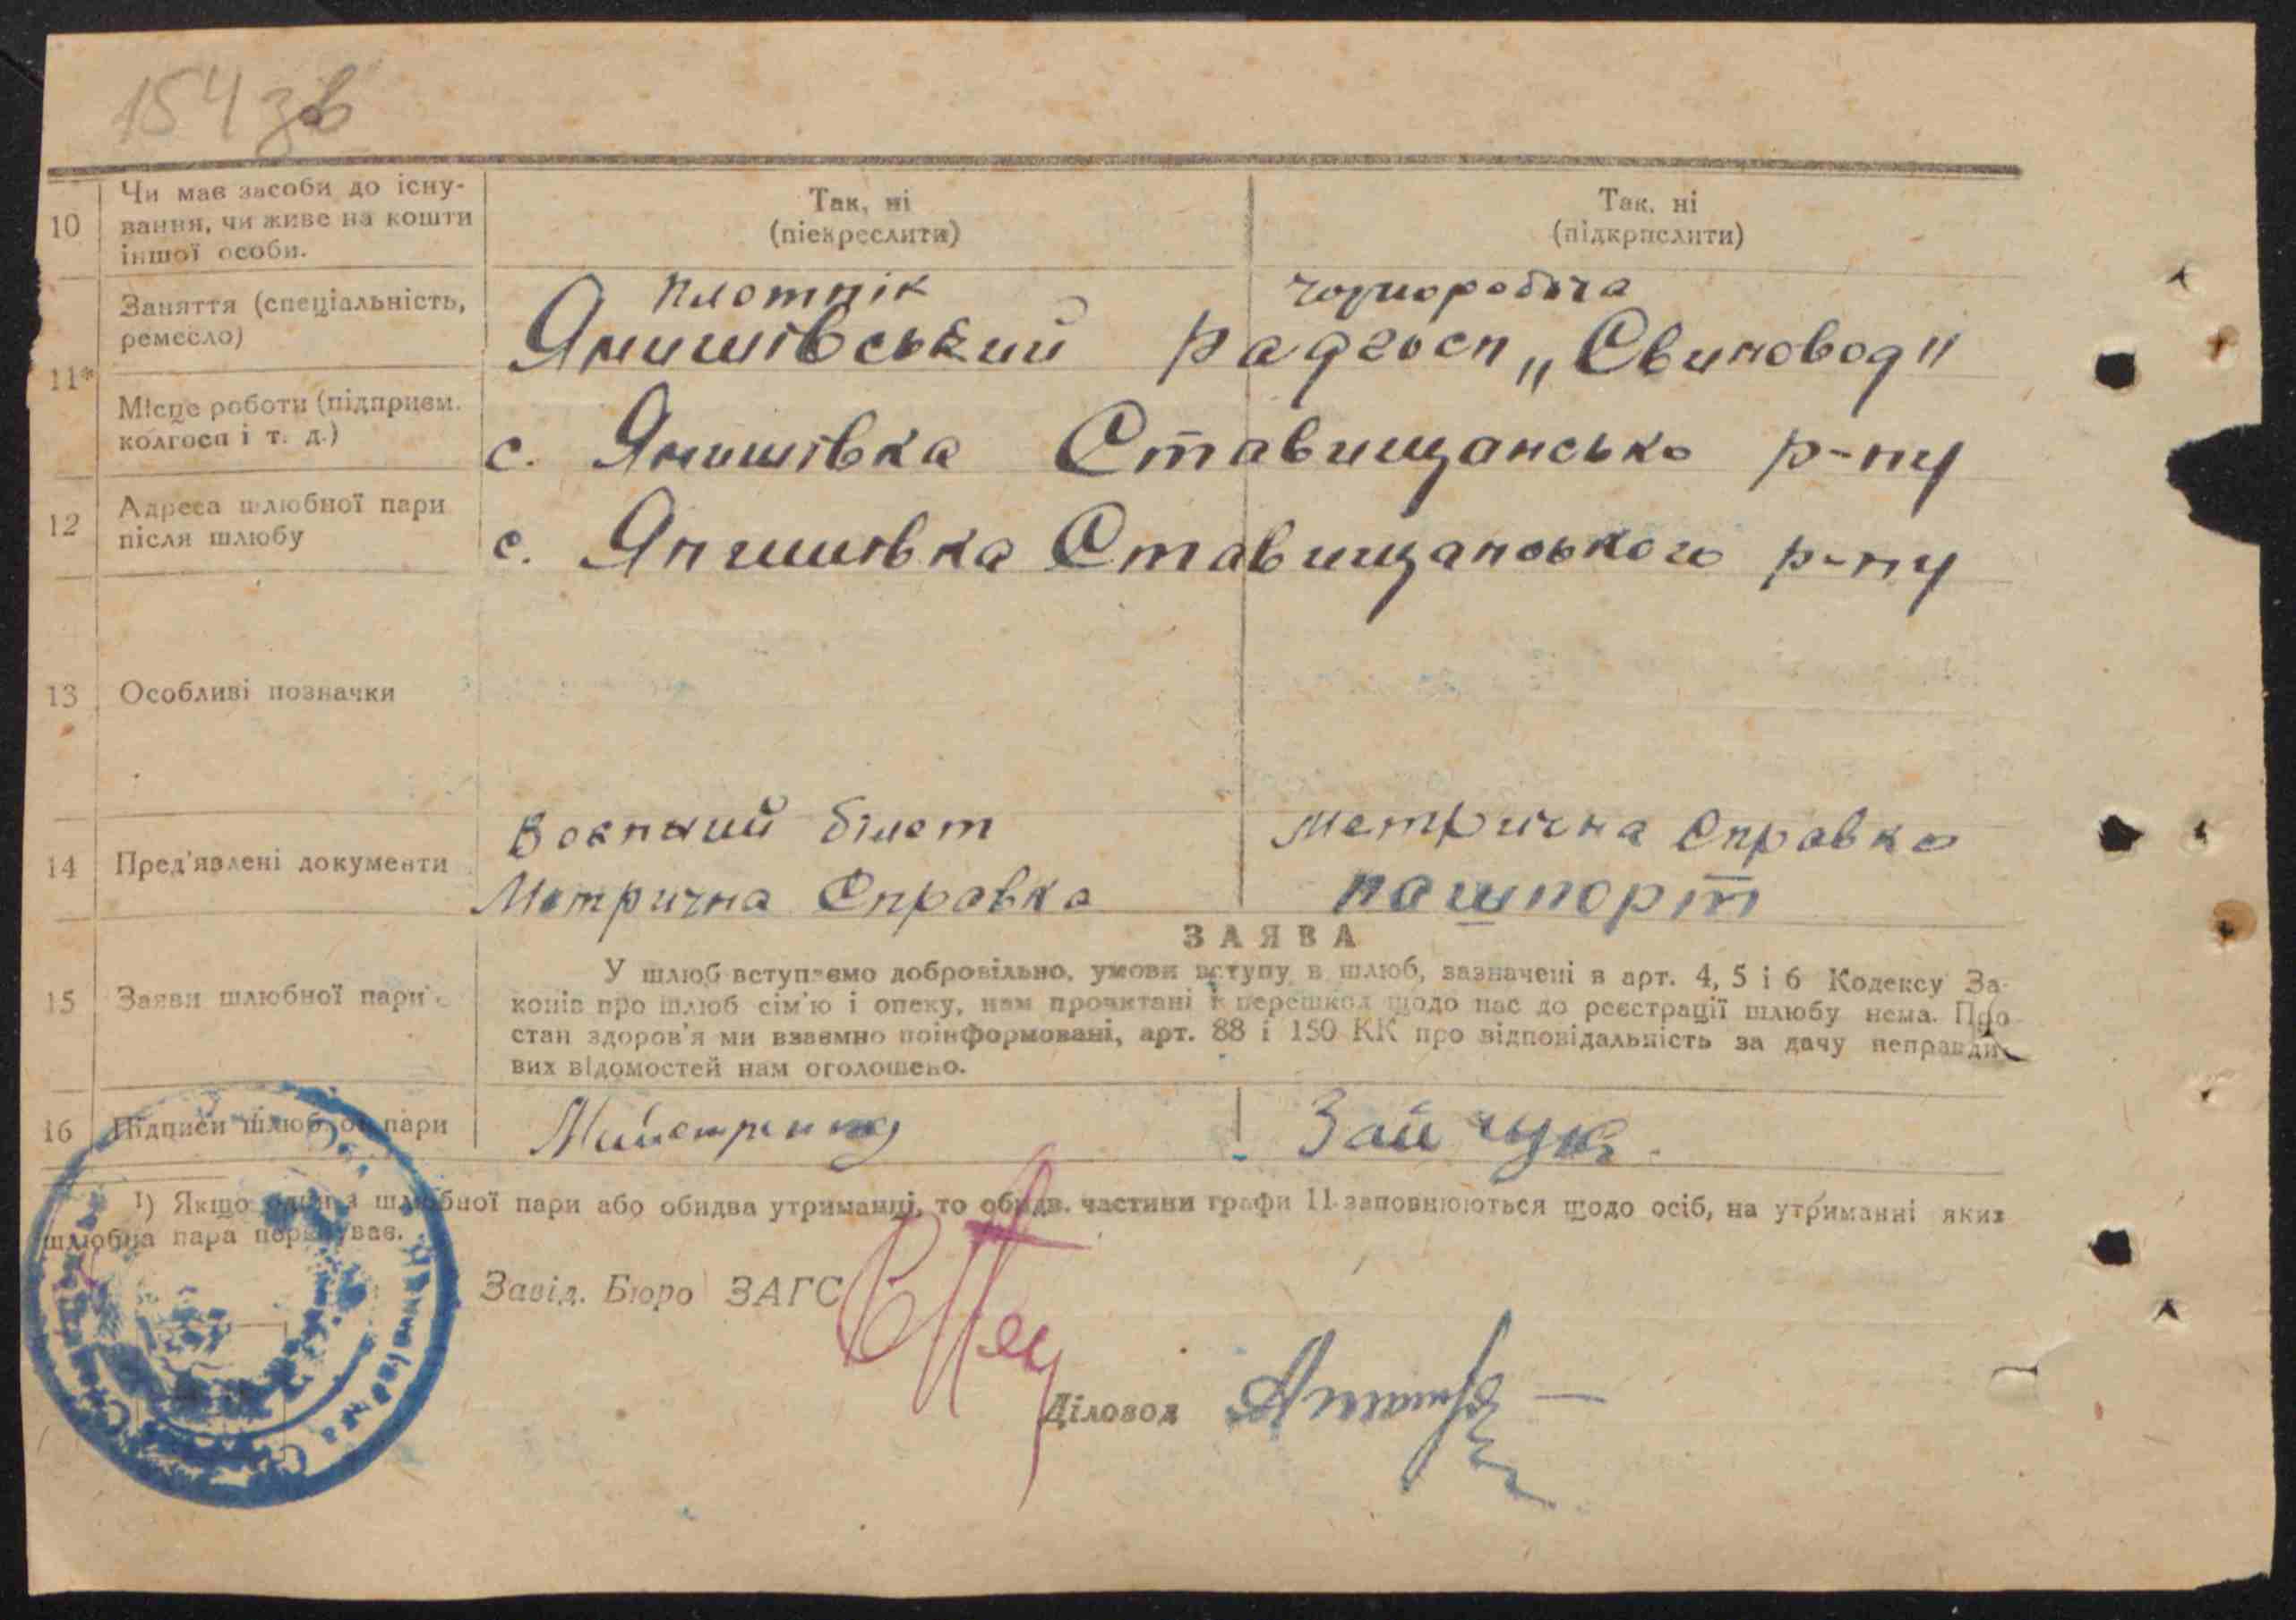 154 зв
10
Чи має засоби до існу-
вання, чи живе на кошти
іншої особи.
Так, ні
(піекреслити)
Так, ні
(підкрпслити)
11*
Заняття (спеціальність,
ремесло)
плотнік
чорноробоча
Янишівський радгосп „Свиновод"
Місце роботи (підприєм.
колгосп і т. д.)
с. Янишівка Ставищансько р-ну
12
Адреса шлюбної пари
після шлюбу
с. Янишівка Ставищанського р-ну
13
Особливі позначки
14
Пред'явлені документи
Воєнний білет
Метрична Справка
метрична Справка
пашпорт
15
Заяви шлюбної пари
ЗАЯВА
У шлюб вступаємо добровільно, умови вступу в шлюб, зазначені в арт. 4, 5 і 6 Кодексу За-
конів про шлюб сім'ю і опеку, нам прочитані і перешкод щодо нас до реєстрації шлюбу нема. Про
стан здоров'я ми взаємно поінформовані, арт. 88 і 150 КК про відповідальність за дачу неправди-
вих відомостей нам оголошено.
16
Підписи шлюбної пари
Зайчук.
¹) Якщо один з шлюбної пари або обидва утриманці, то обидв. частини графи 11 заповнюються щодо осіб, на утриманні яких
шлюбна пара перебуває.
Завід. Бюро ЗАГС
Діловод